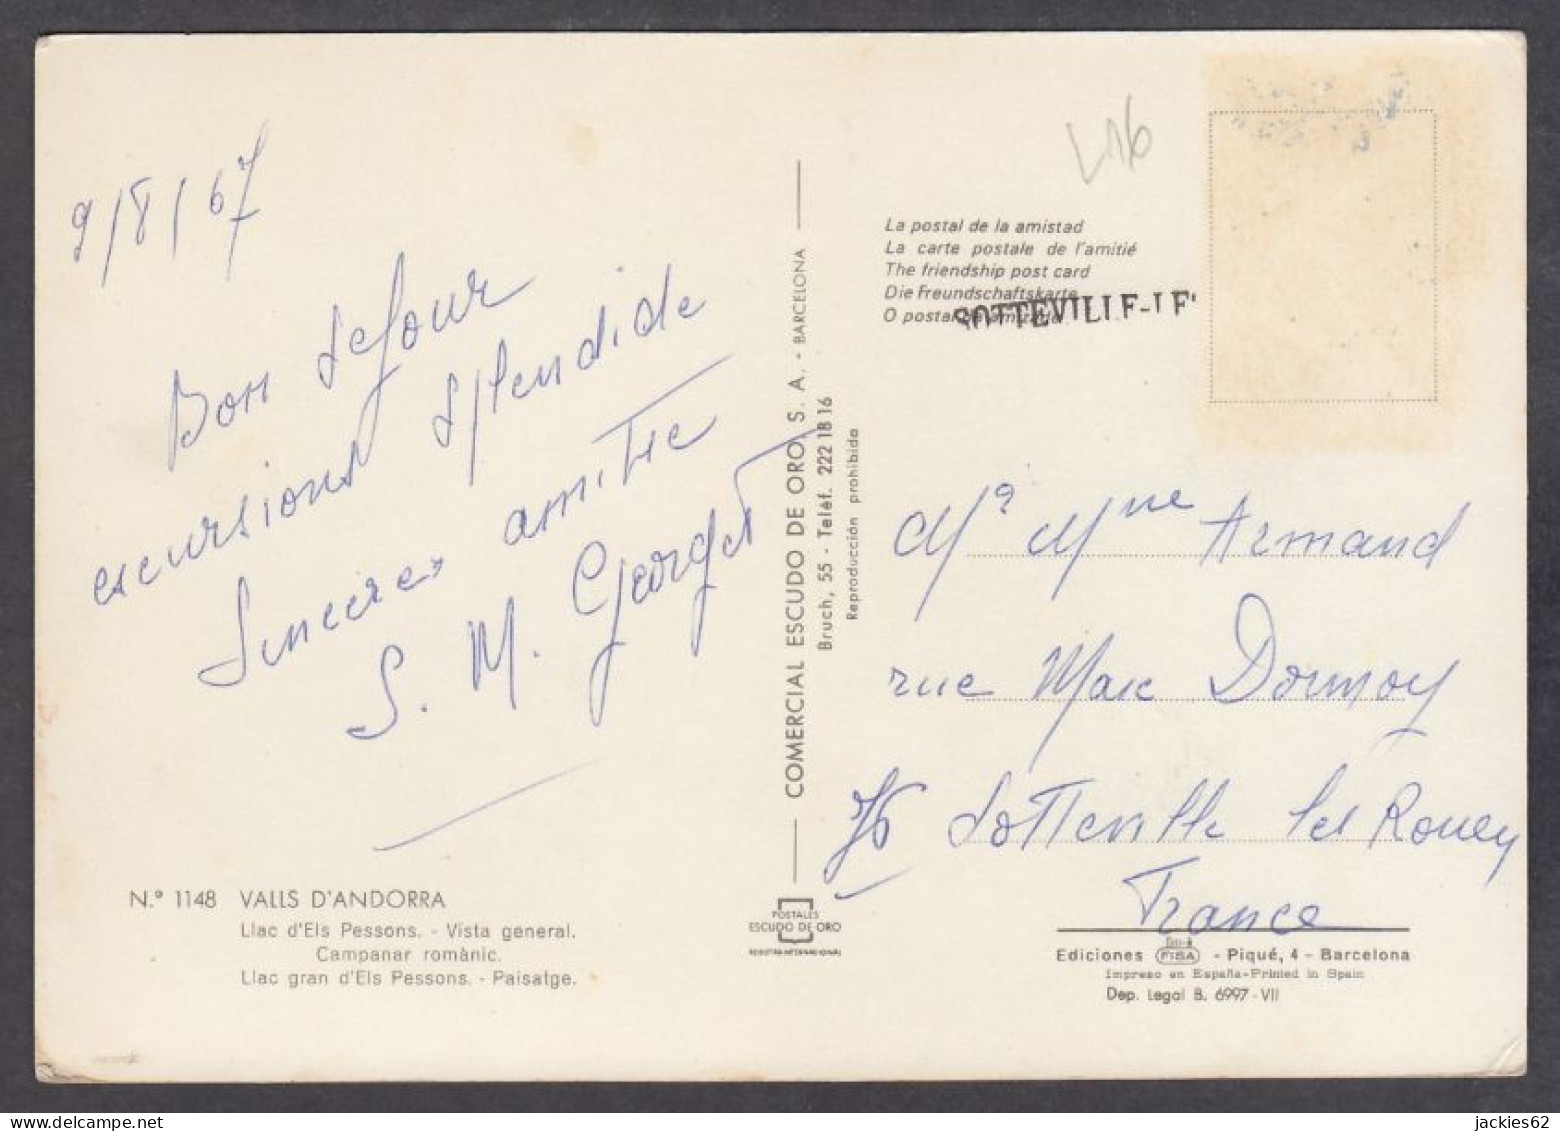 9/8/67
Bon séjour
excursions splendide
Sincères amitié
S. M. Georget
Nº 1148 VALLS D'ANDORRA
Llac d'Els Pessons. - Vista general.
Campanar romànic.
Llac gran d'Els Pessons. - Paisatge.
COMERCIAL ESCUDO DE ORO, S. A. - BARCELONA
Bruch, 55 - Teléf. 222 18 16
Reproducción prohibida
POSTALES
ESCUDO DE ORO
REGISTRO INTERNACIONAL
L16
La postal de la amistad
La carte postale de l'amitié
The friendship post card
Die Freundschaftskarte
O postal da amizade
SOTTEVILLE-LE
Mr Mme Armand
rue Marx Dormoy
76 Sotteville les Rouen
France
Ediciones FISA - Piqué, 4 - Barcelona
Impreso en España-Printed in Spain
Dep. Legal B. 6997-VII
jackies62